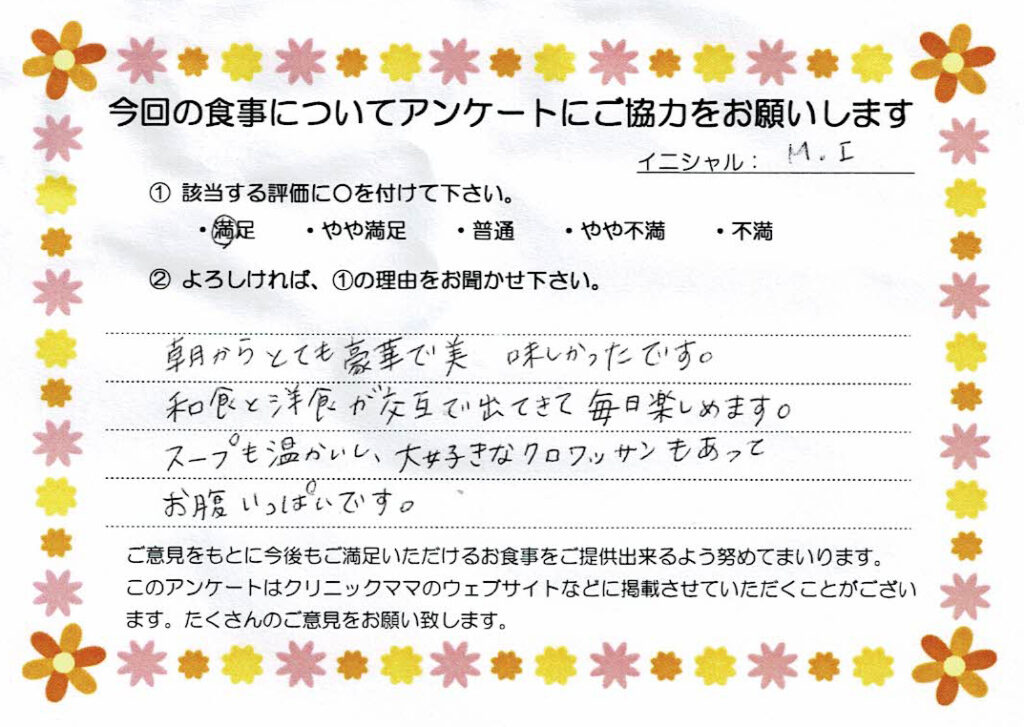 今回の食事についてアンケートにご協力をお願いします
イニシャル： M.I
① 該当する評価に〇を付けて下さい。
・満足 ・やや満足 ・普通 ・やや不満 ・不満
② よろしければ、①の理由をお聞かせ下さい。
朝からとても豪華で美 味しかったです。
和食と洋食が交互で出てきて毎日楽しめます。
スープも温かいし、大好きなクロワッサンもあって
お腹いっぱいです。
ご意見をもとに今後もご満足いただけるお食事をご提供出来るよう努めてまいります。
このアンケートはクリニックママのウェブサイトなどに掲載させていただくことがござい
ます。たくさんのご意見をお願い致します。